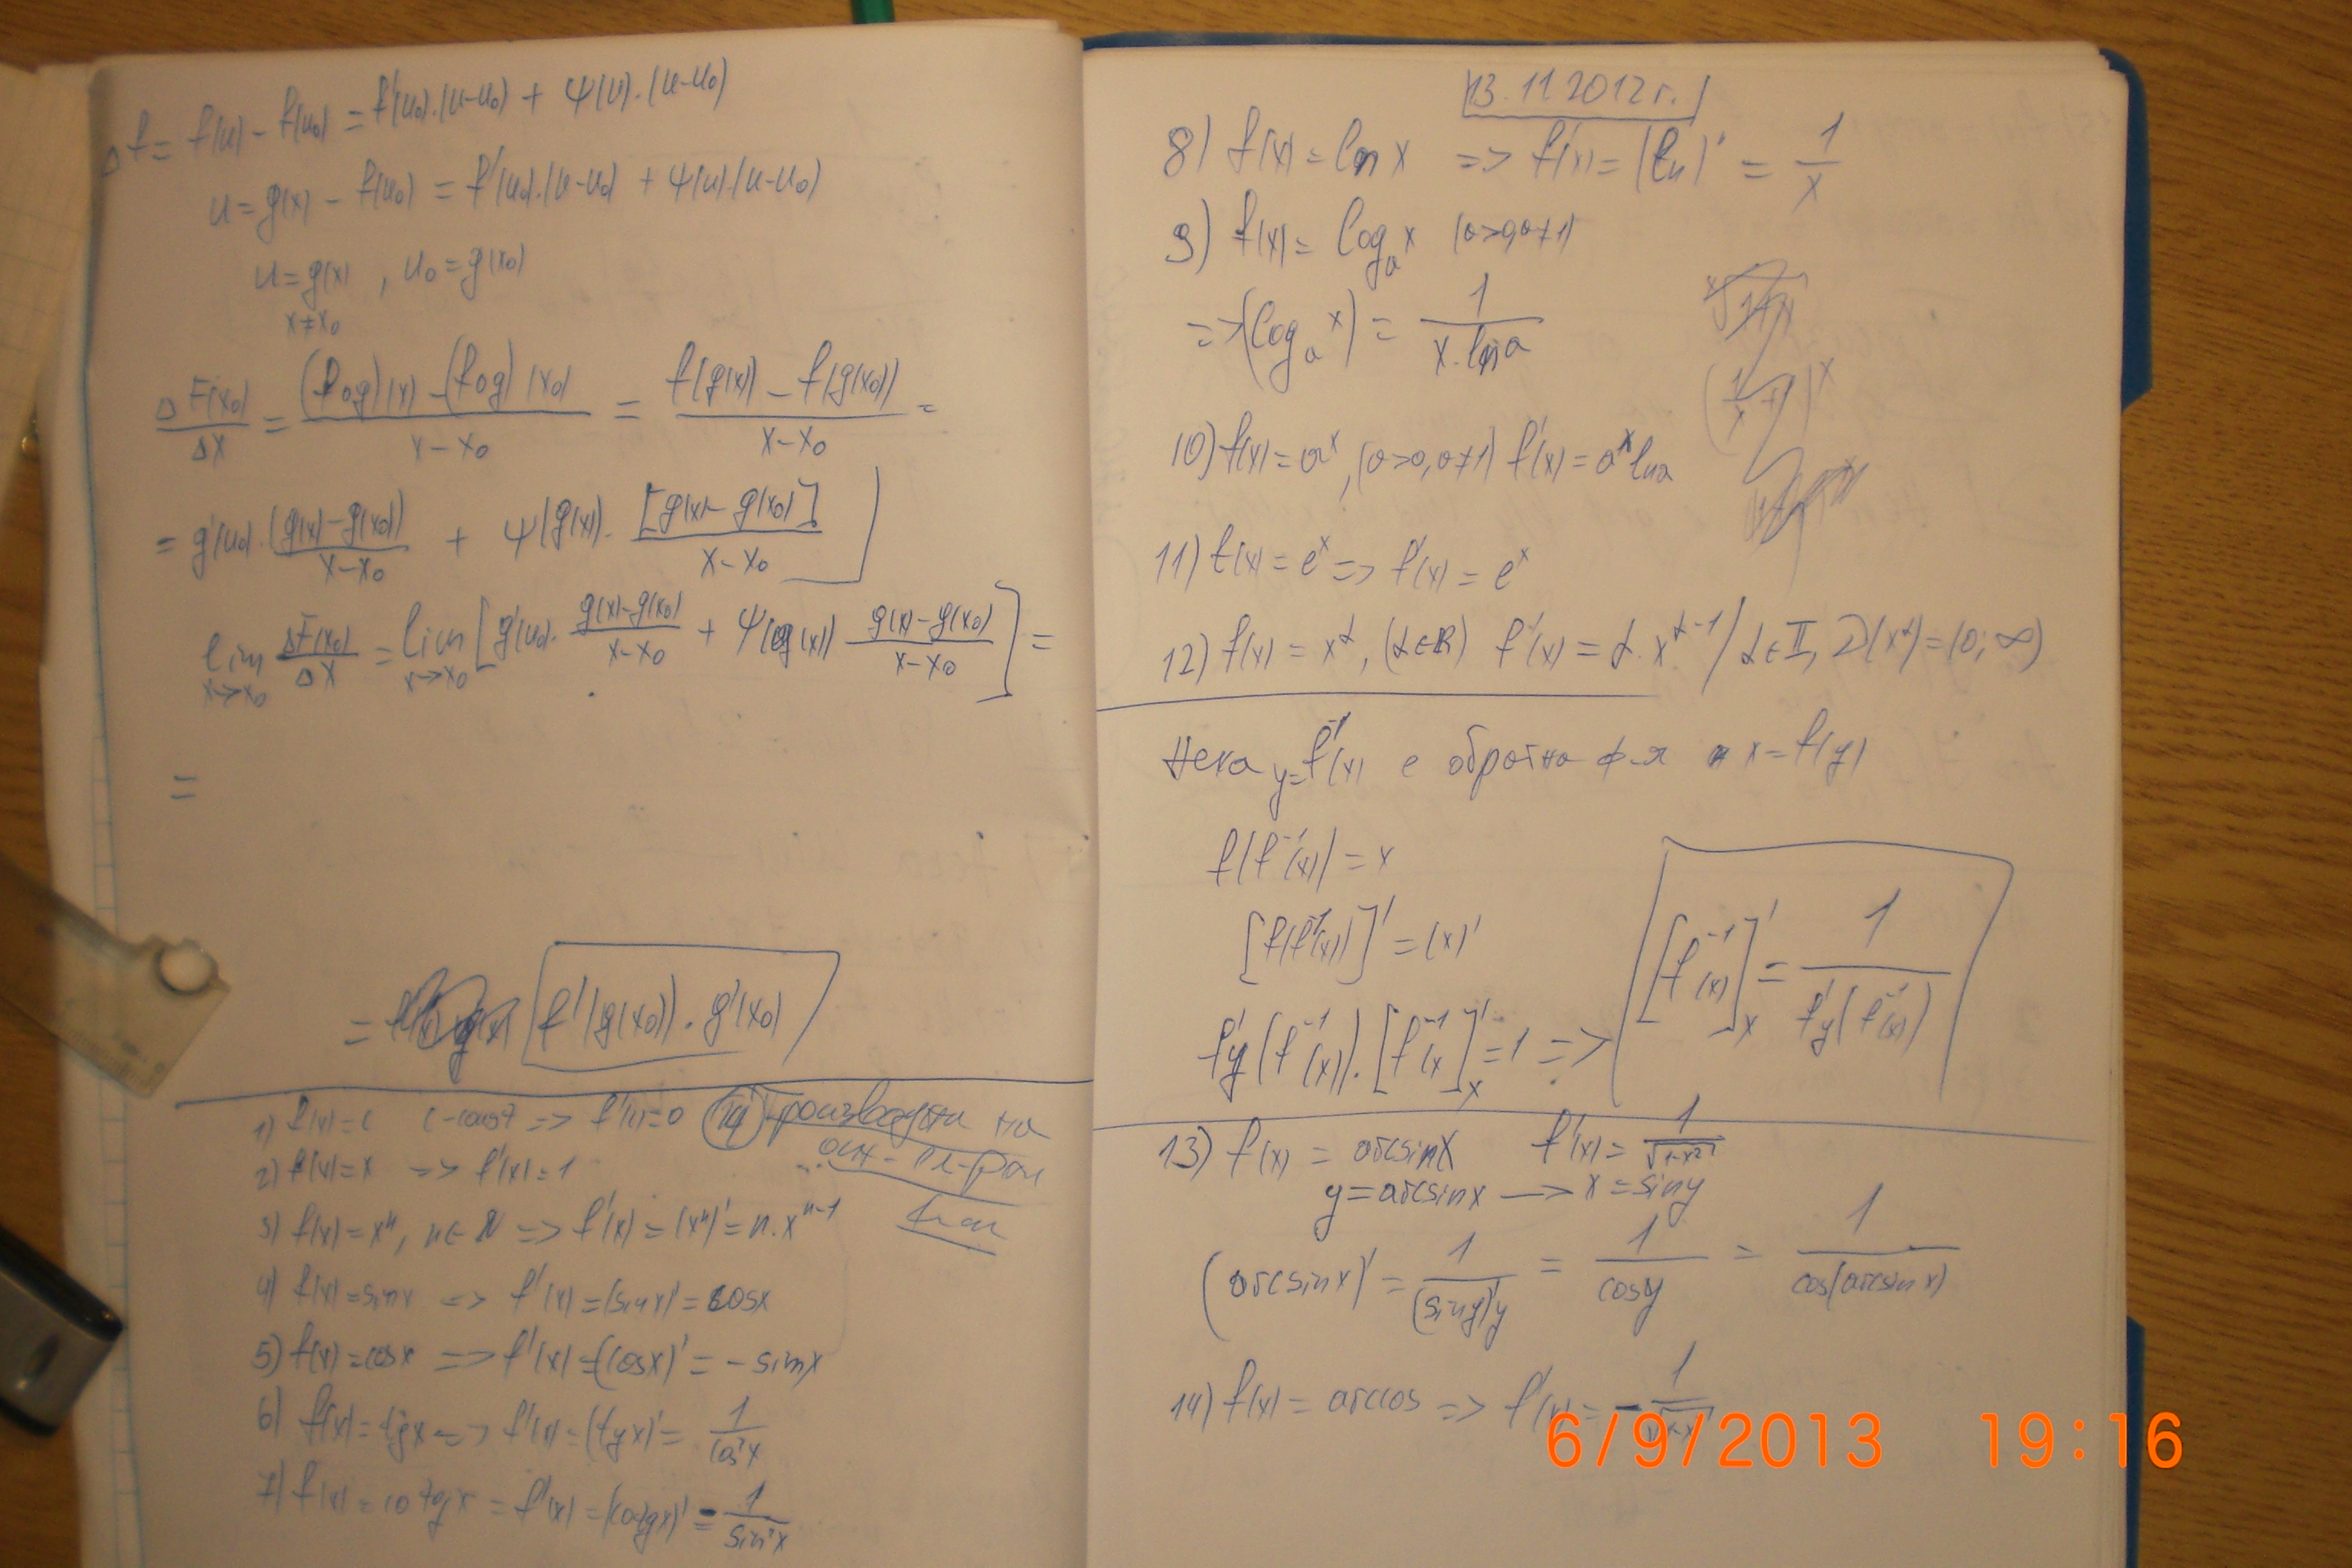 Δf = f(u) - f(u₀) = f'(u₀).(u-u₀) + ψ(u).(u-u₀)
u = g(x) - f(u₀) = f'(u₀).(u-u₀) + ψ(u).(u-u₀)
u = g(x) , u₀ = g(x₀)
x≠x₀
ΔF(x₀)/Δx = ((fog)(x) - (fog)(x₀))/(x-x₀) = (f(g(x)) - f(g(x₀)))/(x-x₀) =
= g'(u₀).(g(x)-g(x₀))/(x-x₀) + ψ(g(x)).[g(x)-g(x₀)]/(x-x₀) ]
lim x→x₀ ΔF(x₀)/Δx = lim x→x₀ [g'(u₀). (g(x)-g(x₀))/(x-x₀) + ψ(g(x)) (g(x)-g(x₀))/(x-x₀)] =
=
= f'(g(x₀)).g'(x₀)
1) f(x)=c c-const => f'(x)=0 14 производни на
2) f(x)=x => f'(x)=1 осн.
3) f(x)=xⁿ, n∈N => f'(x)=(xⁿ)'=n.xⁿ⁻¹
4) f(x)=sinx => f'(x)=(sinx)'=cosx
5) f(x)=cosx => f'(x)=(cosx)'=-sinx
6) f(x)=tgx => f'(x)=(tgx)'= 1/cos²x
7) f(x)=cotgx = f'(x)=(cotgx)'= -1/sin²x
13.11 2012 г.
8) f(x)=ln x => f'(x)=(ln)' = 1/x
9) f(x)= logₐ x (a>0,a≠1)
=> (logₐ x) = 1/(x.lna)
10) f(x)=aˣ, (a>0,a≠1) f'(x)=aˣlna
11) f(x)=eˣ => f'(x)=eˣ
12) f(x)=x^α, (α∈R) f'(x)=α.x^(α-1) / α∈II, D(x^α)=(0;∞)
Нека y=f⁻¹(x) е обратна ф-я на x=f(y)
f(f⁻¹(x))=x
[f(f⁻¹(x))]'=(x)'
f'y(f⁻¹(x)).[f⁻¹(x)]'x=1 => [f⁻¹(x)]'x = 1/f'y(f⁻¹(x))
13) f(x)=arcsinx f'(x)= 1/√(1-x²)
y=arcsinx —> x=siny
(arcsinx)' = 1/(siny)'y = 1/cosy = 1/cos(arcsinx)
14) f(x)=arccos => f'(x)= -1/√(1-x²)
6/9/2013 19:16